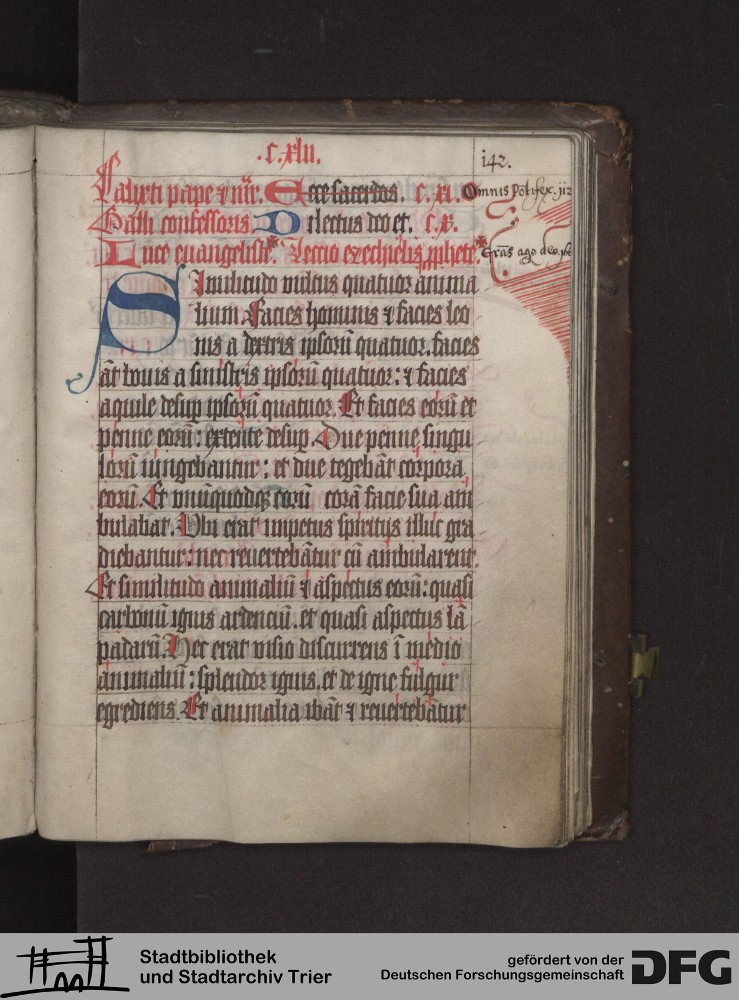 .C.xlii.
142.
Calixti pape ⁊ mr̄. Ecce sacerdos. C. xl. Omnis Pōtifex. 112
Galli confessoris. Dilectus deo et. C. x.
Luce euangeliste. Lectio ezechielis ꝓphete. Grās ago deo.
Similitudo vultus quatuor anima
lium. Facies hominis ⁊ facies leo
nis a dextris ipsorū quatuor. facies
āt bouis a sinistris ipsorū quatuor: ⁊ facies
aquile desup ipsorū quatuor. Et facies eorū et
penne eorū: extente desup. Due penne singu
lorū iungebantur: et due tegebāt corpora
eorū. Et vnūquodqꝫ eorū corā facie sua am
bulabat. Vbi erat impetus spiritus illuc gra
diebantur: nec reuertebātur cū ambularent.
Et similitudo animaliū ⁊ aspectus eorū: quasi
carbonū ignis ardenciū. et quasi aspectus lā
padarū. Hec erat visio discurrens ī medio
animaliū: splendor ignis. et de igne fulgur
egrediens. Et animalia ibāt ⁊ reuertebātur
Stadtbibliothek
und Stadtarchiv Trier
gefördert von der
Deutschen Forschungsgemeinschaft
DFG